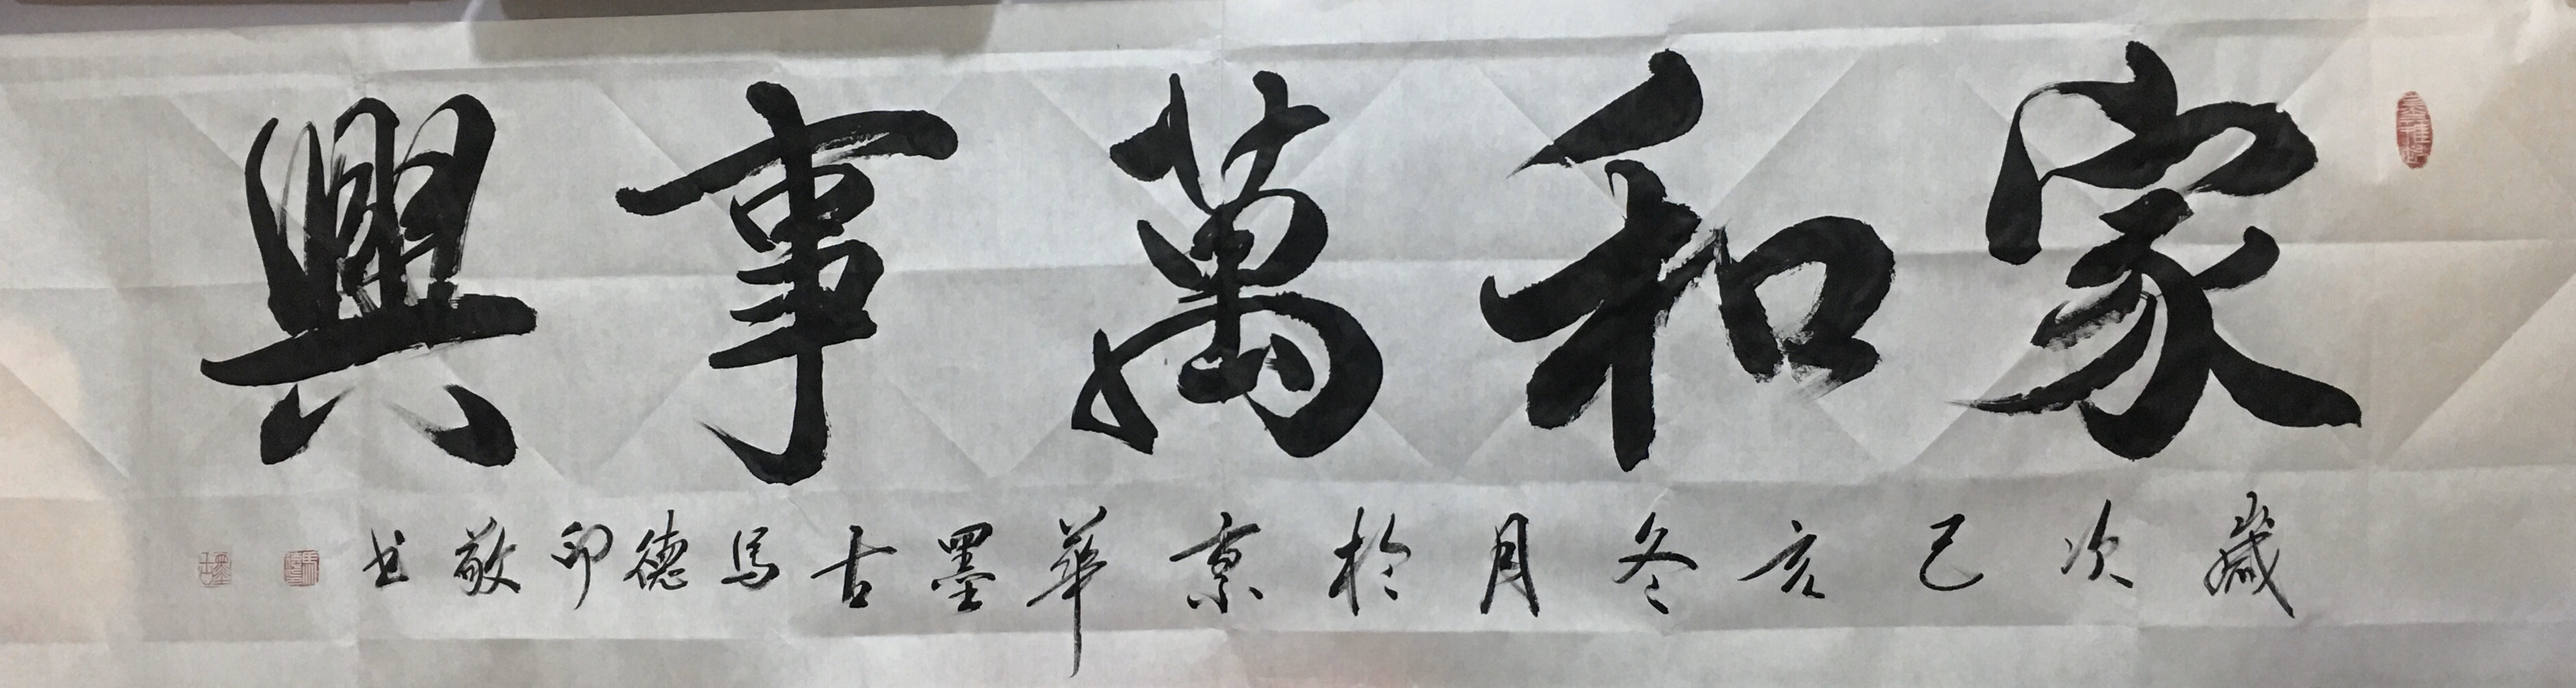 家和萬事興
歲次己亥冬月於京華墨古馬德印敬书